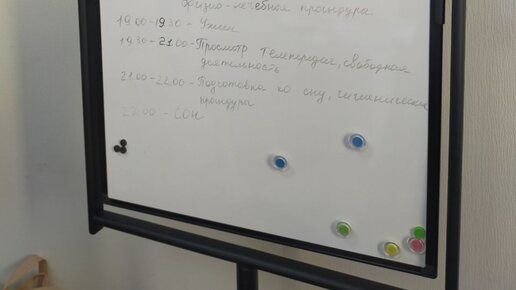 физио-лечебная процедура
19.00-19.30 - Ужин
19.30-21.00-Просмотр телепередач, свободная
деятельность
21.00-22.00 - Подготовка ко сну, гигиенические
процедуры
22.00 - СОН